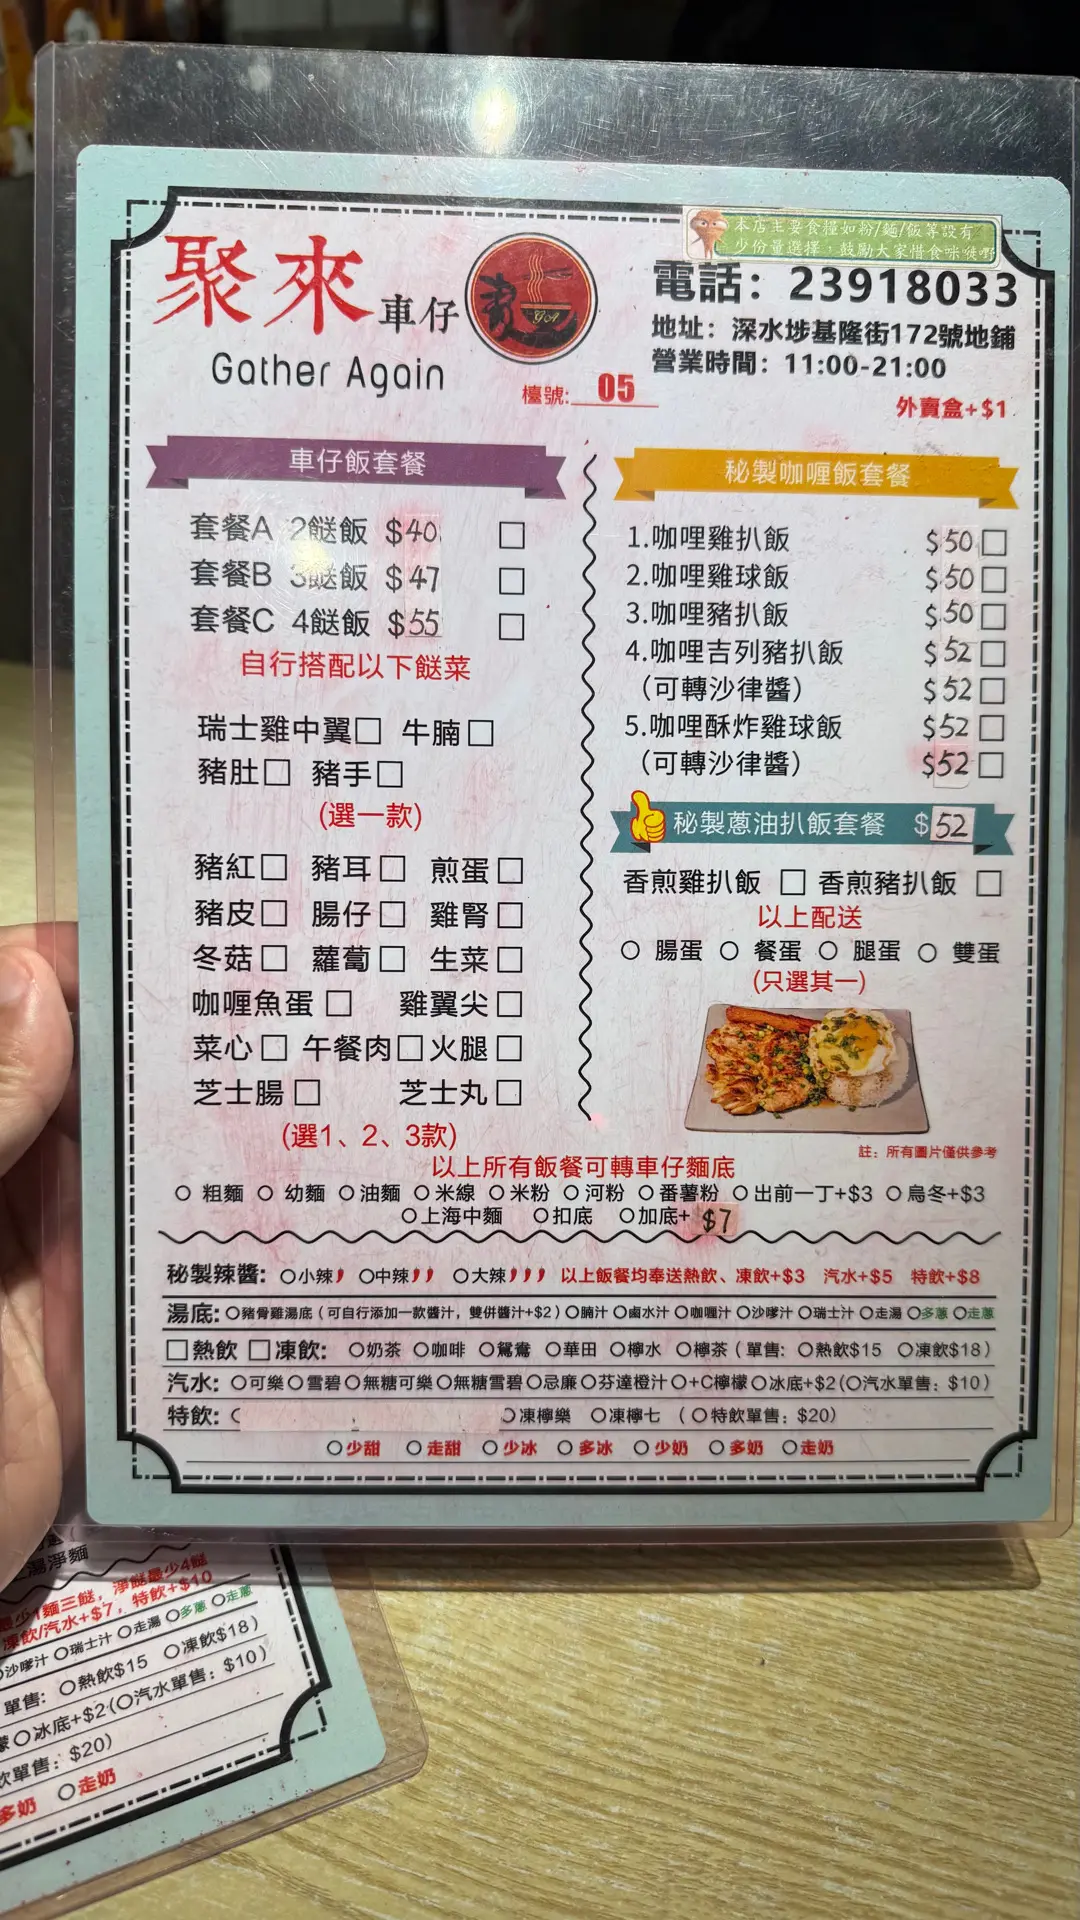 本店主要食糧如粉/麵/飯等設有
少份量選擇，鼓勵大家惜食咪嘥嘢
聚來車仔
GA
Gather Again
電話：23918033
地址：深水埗基隆街172號地鋪
營業時間：11:00-21:00
檯號: 05
外賣盒+$1
車仔飯套餐
套餐A 2餸飯 $40 □
套餐B 3餸飯 $47 □
套餐C 4餸飯 $55 □
自行搭配以下餸菜
瑞士雞中翼□ 牛腩□
豬肚□ 豬手□
(選一款)
豬紅□ 豬耳□ 煎蛋□
豬皮□ 腸仔□ 雞腎□
冬菇□ 蘿蔔□ 生菜□
咖喱魚蛋□ 雞翼尖□
菜心□ 午餐肉□ 火腿□
芝士腸□ 芝士丸□
(選1、2、3款)
秘製咖喱飯套餐
1.咖哩雞扒飯 $50 □
2.咖哩雞球飯 $50 □
3.咖哩豬扒飯 $50 □
4.咖哩吉列豬扒飯 $52 □
（可轉沙律醬） $52 □
5.咖哩酥炸雞球飯 $52 □
（可轉沙律醬） $52 □
秘製蔥油扒飯套餐 $52
香煎雞扒飯 □ 香煎豬扒飯 □
以上配送
○ 腸蛋 ○ 餐蛋 ○ 腿蛋 ○ 雙蛋
(只選其一)
註：所有圖片僅供參考
以上所有飯餐可轉車仔麵底
○ 粗麵 ○ 幼麵 ○油麵 ○米線 ○米粉 ○河粉 ○番薯粉 ○出前一丁+$3 ○烏冬+$3
○上海中麵 ○扣底 ○加底+ $7
秘製辣醬: ○小辣 ○中辣 ○大辣 以上飯餐均奉送熱飲、凍飲+$3 汽水+$5 特飲+$8
湯底: ○豬骨雞湯底（可自行添加一款醬汁，雙併醬汁+$2）○腩汁 ○鹵水汁 ○咖喱汁 ○沙嗲汁 ○瑞士汁 ○走湯 ○多蔥 ○走蔥
□熱飲 □凍飲: ○奶茶 ○咖啡 ○鴛鴦 ○華田 ○檸水 ○檸茶（單售: ○熱飲$15 ○凍飲$18）
汽水: ○可樂○雪碧○無糖可樂○無糖雪碧○忌廉○芬達橙汁○+C檸檬○冰底+$2(○汽水單售: $10)
特飲: ○凍檸樂 ○凍檸七 （○特飲單售: $20）
○少甜 ○走甜 ○少冰 ○多冰 ○少奶 ○多奶 ○走奶
湯淨麵
最少1麵三餸，淨餸最少4餸
凍飲/汽水+$7，特飲+$10
沙嗲汁 ○瑞士汁 ○走湯 ○多蔥 ○走蔥
單售: ○熱飲$15 ○凍飲$18）
○冰底+$2(○汽水單售: $10)
飲單售: $20）
多奶 ○走奶